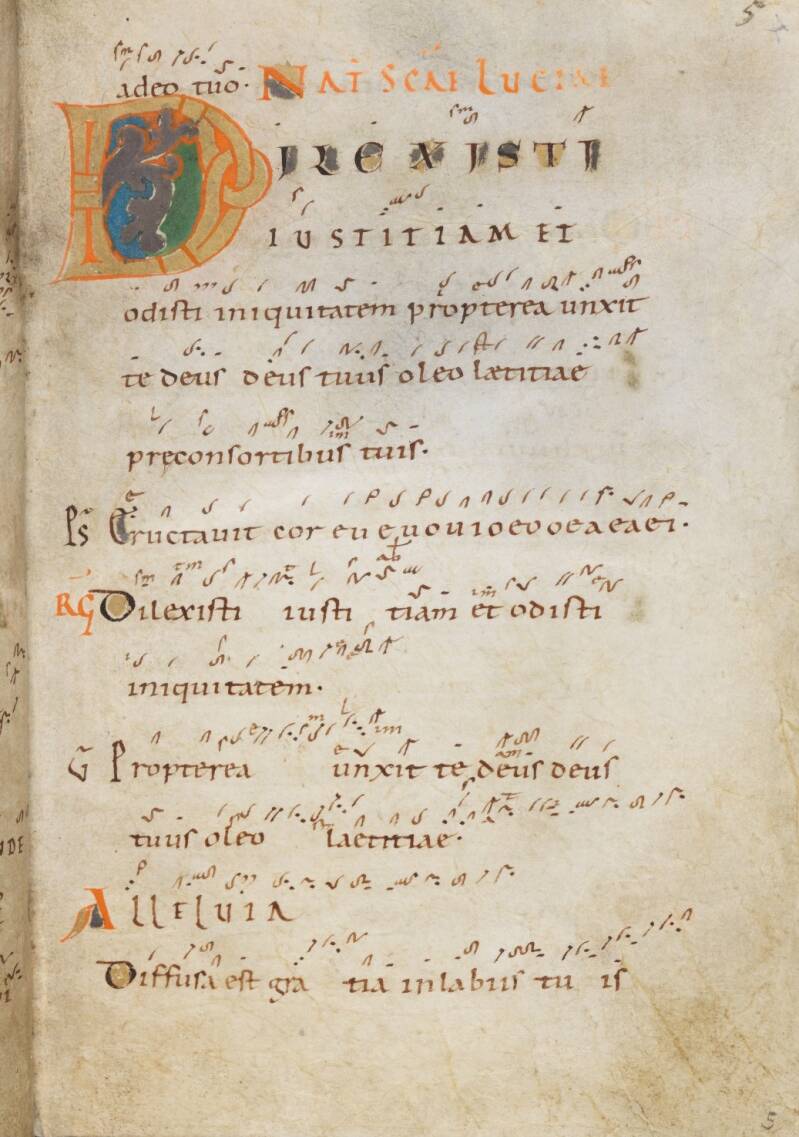 5
adeo tuo· NAT SCAE LUCIAE
DILEXISTI
IUSTITIAM ET
odisti iniquitatem propterea unxit
te deus deus tuus oleo lætitiae
pręconsortibus tuis·
Ps Eructauit cor eu e u o u i o e o o e a e a e i ·
RG Dilexisti iusti tiam et odisti
iniquitatem·
V Propterea unxit te deus deus
tuus oleo laetitiae·
Alleluia
Diffusa est gra tia in labiis tu is
5